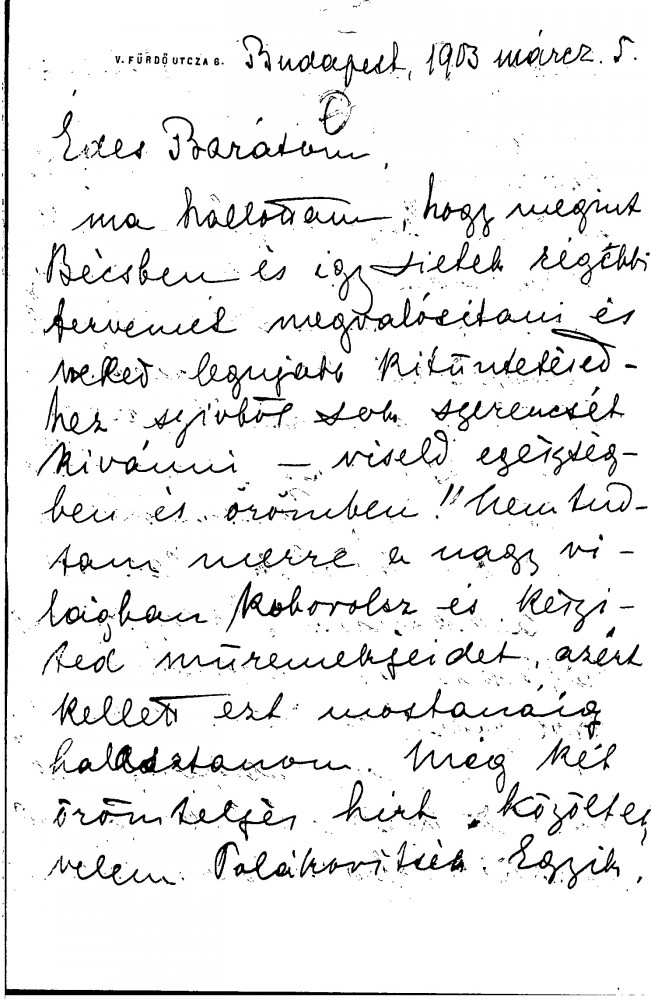 V. FÜRDŐ UTCZA 6. Budapest, 1903 márcz. 5.
Édes Barátom,
ma hallottam, hogy megint
Bécsben és így sietek régebbi
tervemet megvalósitani és
neked legujabb kitüntetésed-
hez szivből sok szerencsét
kivánni – viseld egészség-
ben és örömben! Nem tud-
tam merre a nagy vi-
lágban kóborolsz és készi-
ted müremekjeidet, azért
kellett ezt mostanáig
halasztanom. Még két
örömteljes hirt közöltek
velem Polákovitsék. Egyik,